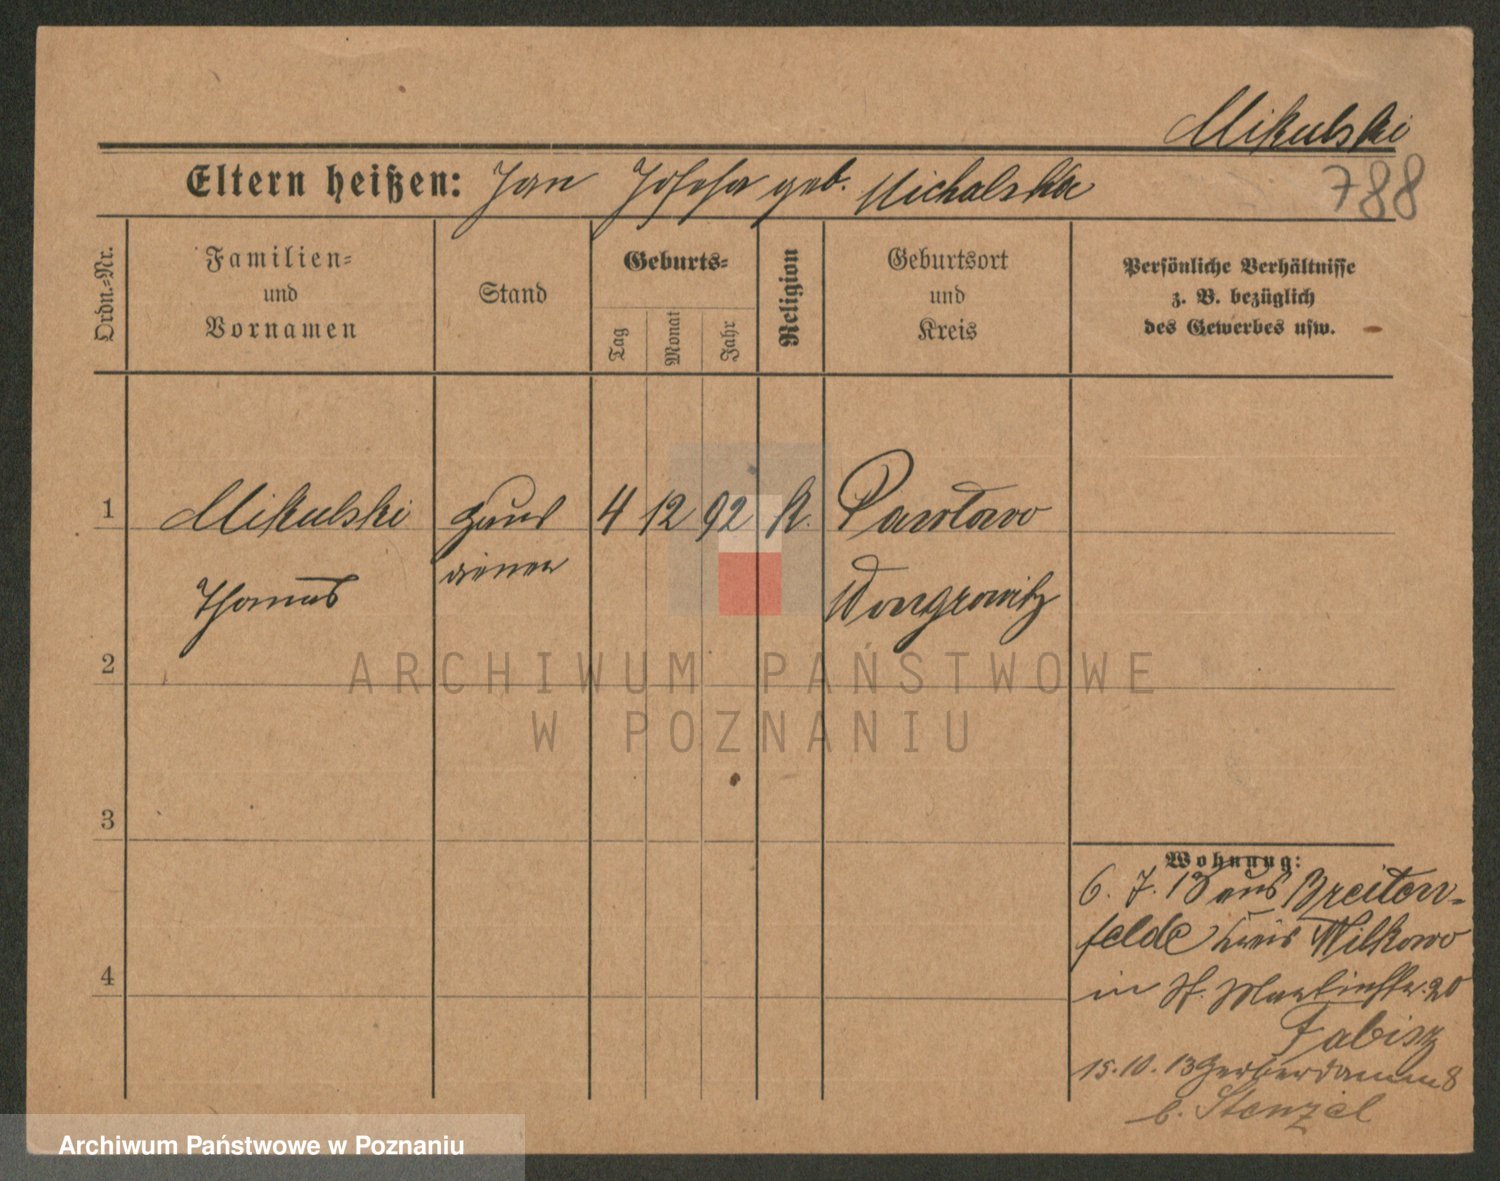 Mikulski
Eltern heißen: Jan Josefa geb. Michalska
788
Ordn.=Nr.
Familien=
und
Vornamen
Stand
Geburts=
Tag
Monat
Jahr
Religion
Geburtsort
und
Kreis
Persönliche Verhältnisse
z. B. bezüglich
des Gewerbes usw.
1
Mikulski
Haus
4 12 92 K.
Pawlowo
diener
Thomas
Wongrowitz
2
ARCHIWUM PAŃSTWOWE
W POZNANIU
3
Wohnung:
6. 7. 13 aus Breiten-
felde Kreis Wilkowo
4
in St. Martinstr. 20
Fabisz
15.10.13 Gerberdamm 8
b. Stenzel
Archiwum Państwowe w Poznaniu